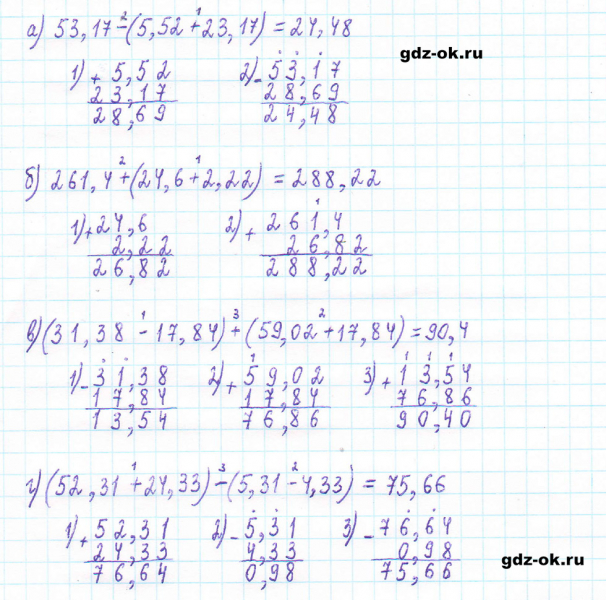 а) 53,17-(5,52+23,17)=24,48
2 1
gdz-ok.ru
1) + 5,52 2) - 53,17
23,17 28,69
28,69 24,48
б) 261,4+(24,6+2,22)=288,22
2 1
1) + 24,6 2) + 261,4
2,22 26,82
26,82 288,22
в) (31,38-17,84)+(59,02+17,84)=90,4
1 3 2
1) - 31,38 2) + 59,02 3) + 13,54
17,84 17,84 76,86
13,54 76,86 90,40
г) (52,31+24,33)-(5,31-4,33)=75,66
1 3 2
1) + 52,31 2) - 5,31 3) - 76,64
24,33 4,33 0,98
76,64 0,98 75,66
gdz-ok.ru